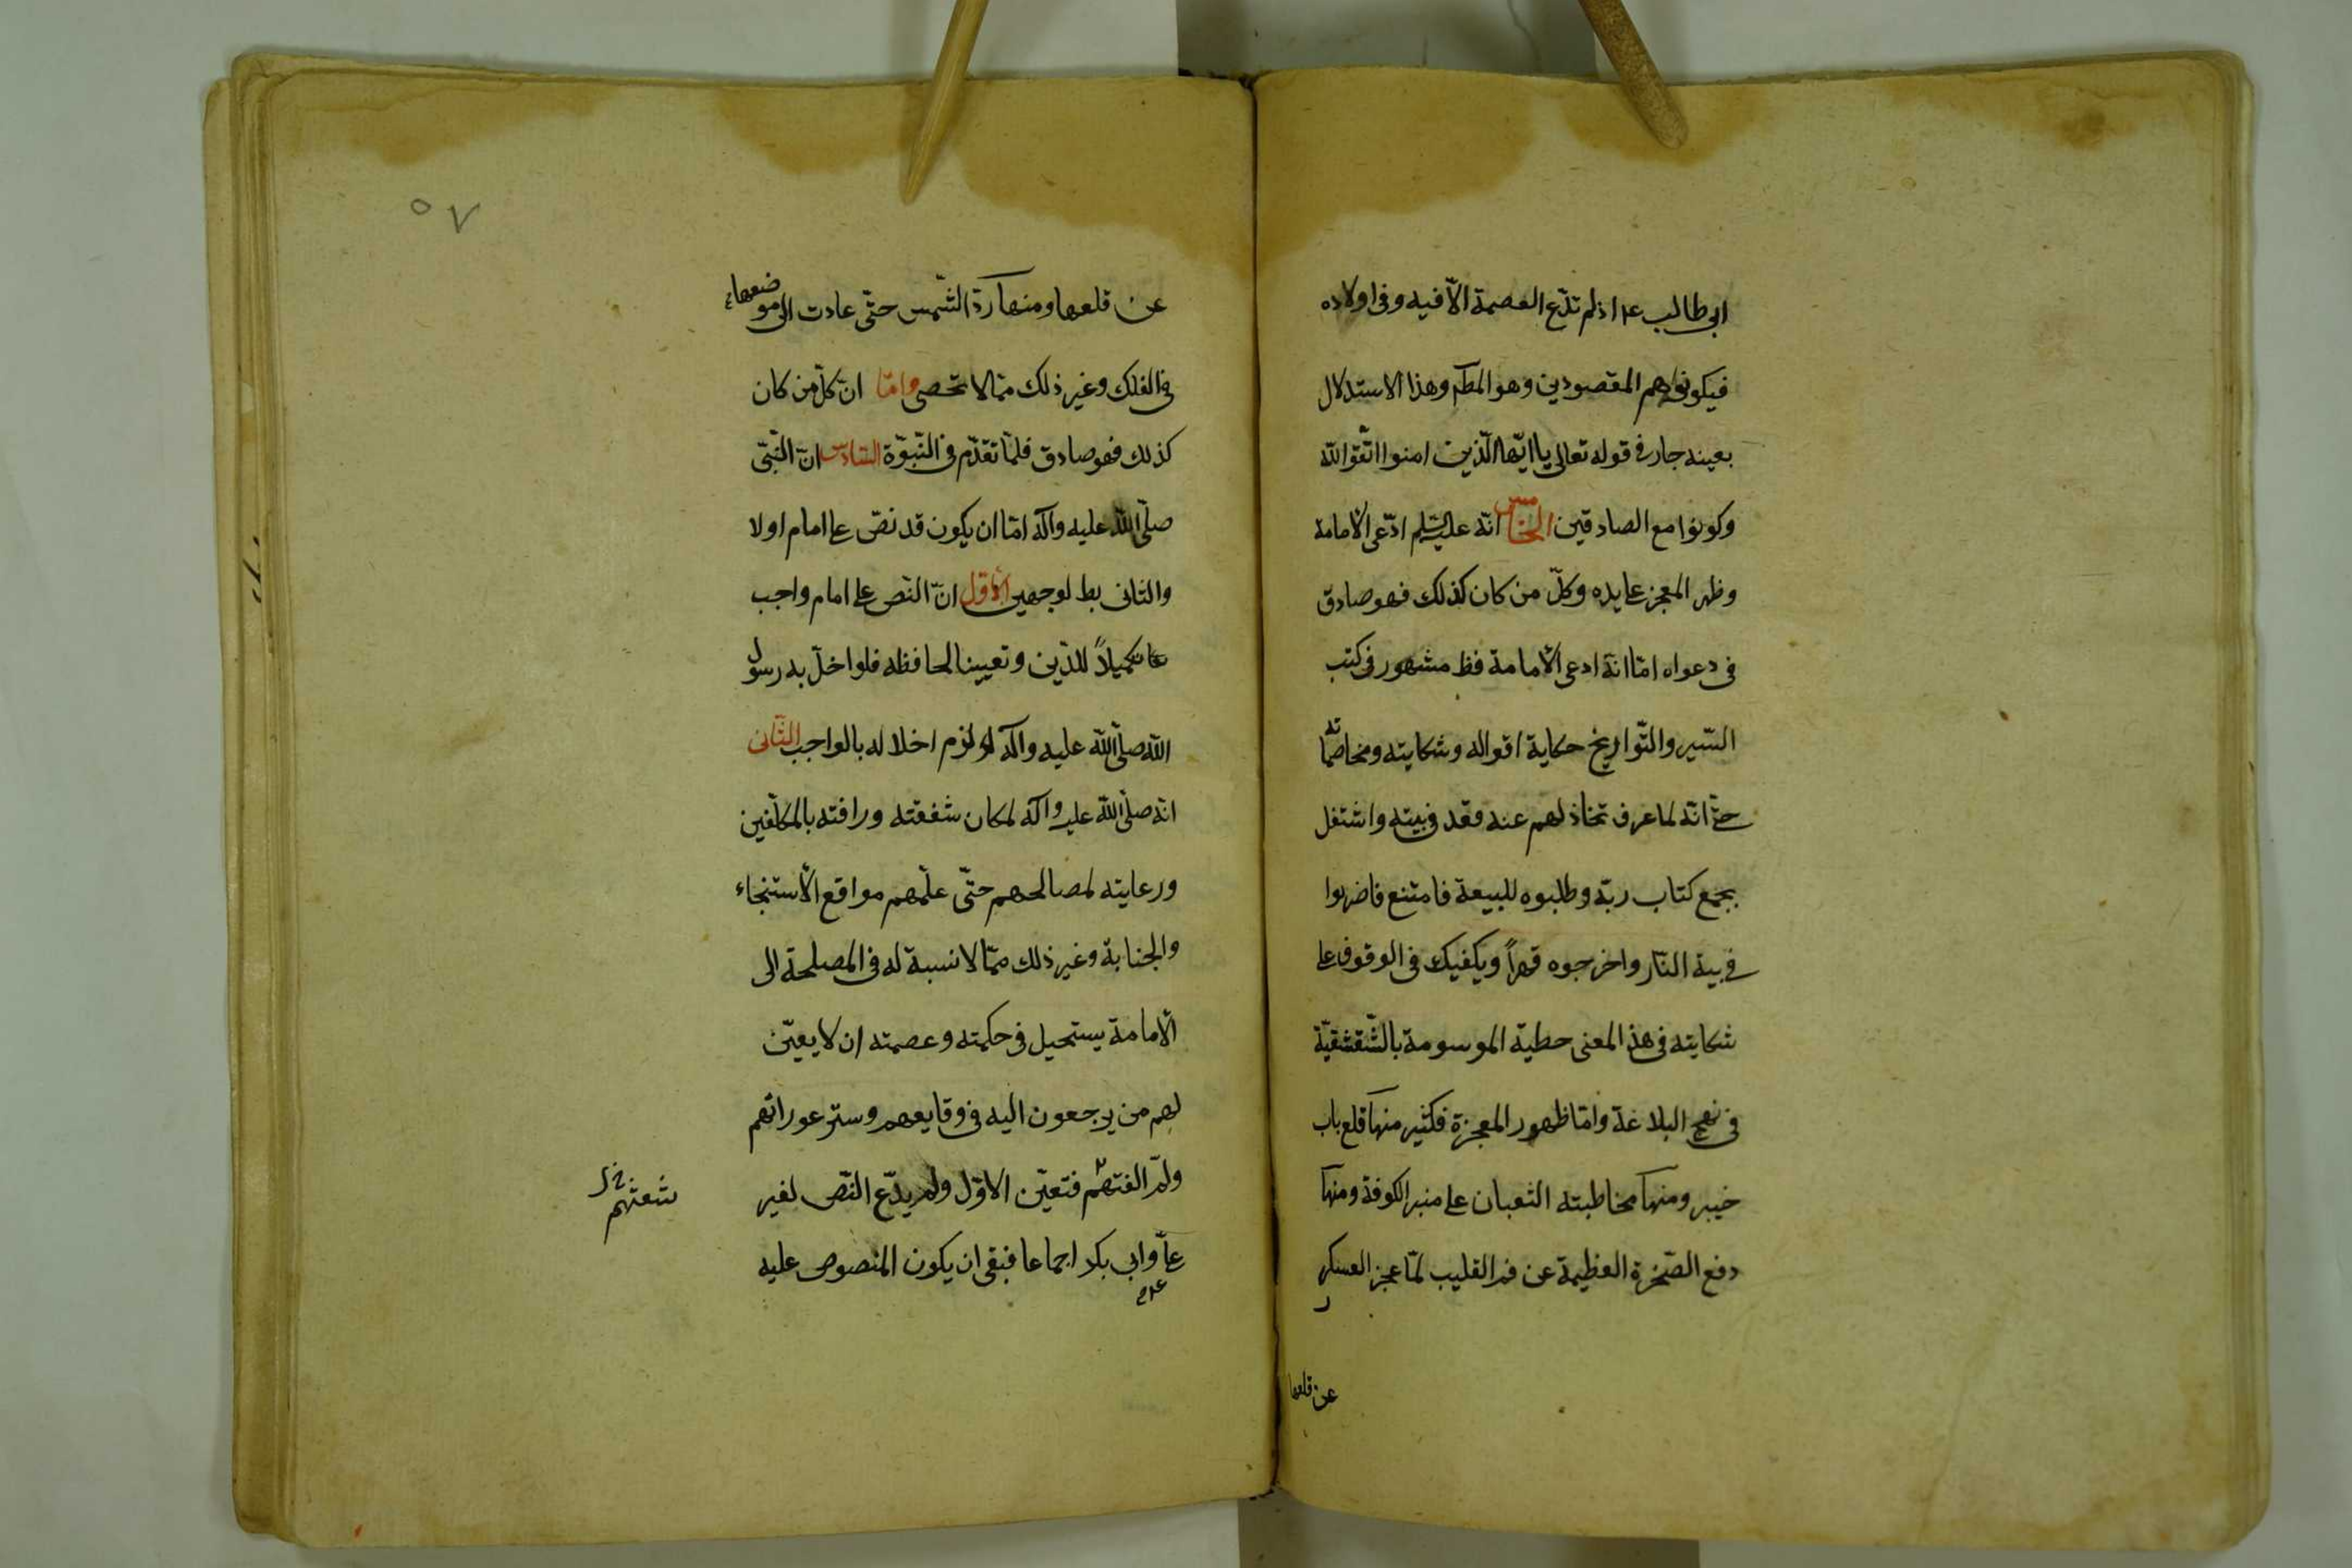 ابى طالب ع اذ لم تدّع العصمة الّا فيه وفى اولاده
فيكونوا هم المقصودين وهو المط وهذا الاستدلال
بعينه جار فى قوله تعالى يا ايّها الّذين امنوا اتّقوا الله
وكونوا مع الصادقين الخامس انّه عليه السّلم ادّعى الامامة
وظهر المعجز على يده وكلّ من كان كذلك فهو صادق
فى دعواه امّا انّه ادعى الامامة فظ مشهور فى كتب
السّير والتّواريخ حكاية اقواله وشكايته ومخاصماته
حتّى انّه لما عرف تخاذلهم عنه قعد فى بيته واشتغل
بجمع كتاب ربّه وطلبوه للبيعة فامتنع فاضرموا
فى بيته النّار واخرجوه قهراً ويكفيك فى الوقوف على
شكايته فى هذ المعنى خطبة الموسومة بالشّقشقيّة
فى نهج البلاغة وامّا ظهور المعجزة فكثير منها قلع باب
خيبر ومنها مخاطبته الثعبان على منبر الكوفة ومنها
دفع الصّخرة العظيمة عن فم القليب لمّا عجز العسكر
عن قلعها
٥٧
عن قلعها ومنها ردّ الشّمس حتّى عادت الى موضعها
فى الفلك وغير ذلك ممّا لا تحصى وامّا انّ كلّ من كان
كذلك فهو صادق فلمّا تقدّم فى النّبوّة السّادس انّ النّبىّ
صلّى الله عليه وآله امّا ان يكون قد نصّ على امام او لا
والثانى بط لوجهين الاوّل انّ النّص على امام واجب
تكميلاً للدّين وتعيينا لحافظه فلو اخلّ به رسول
الله صلّى الله عليه وآله لزم اخلاله بالواجب الثّانى
انّه صلّى الله عليه وآله لمكان شفقته ورافته بالمكلّفين
ورعايته لمصالحهم حتّى علّمهم مواقع الاستنجاء
والجنابة وغير ذلك ممّا لا نسبة له فى المصلحة الى
الامامة يستحيل فى حكمته وعصمته ان لا يعيّن
لهم من يرجعون اليه فى وقايعهم وستر عوراتهم
ولمّ الفتهم فتعيّن الاوّل ولم يدّع النّص لغير
شعثهم خ ل
علىّ وابى بكر اجماعا فبقى ان يكون المنصوص عليه